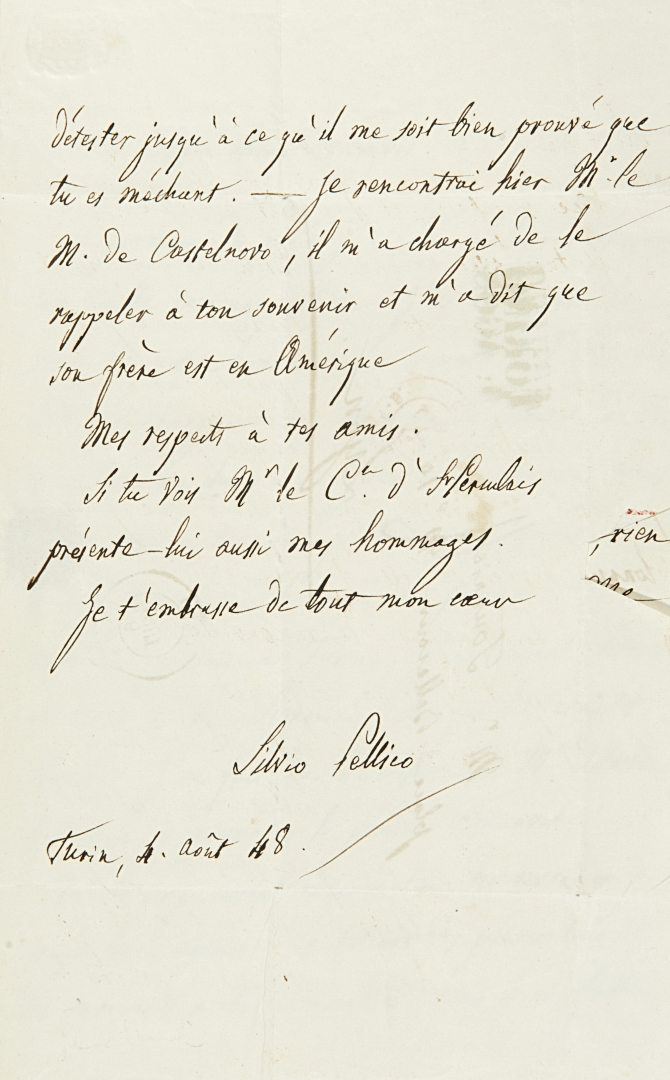 détester jusqu'à ce qu'il me soit bien prouvé que
tu es méchant. — Je rencontrai hier Mr. le
M. de Castelnovo, il m'a chargé de le
rappeler à ton souvenir et m'a dit que
son frère est en Amérique
Mes respects à tes amis.
Si tu vois Mr le Cte. d'
présente-lui aussi mes hommages.
, rien
Je t'embrasse de tout mon cœur
Silvio Pellico
Turin, 4. août 48.